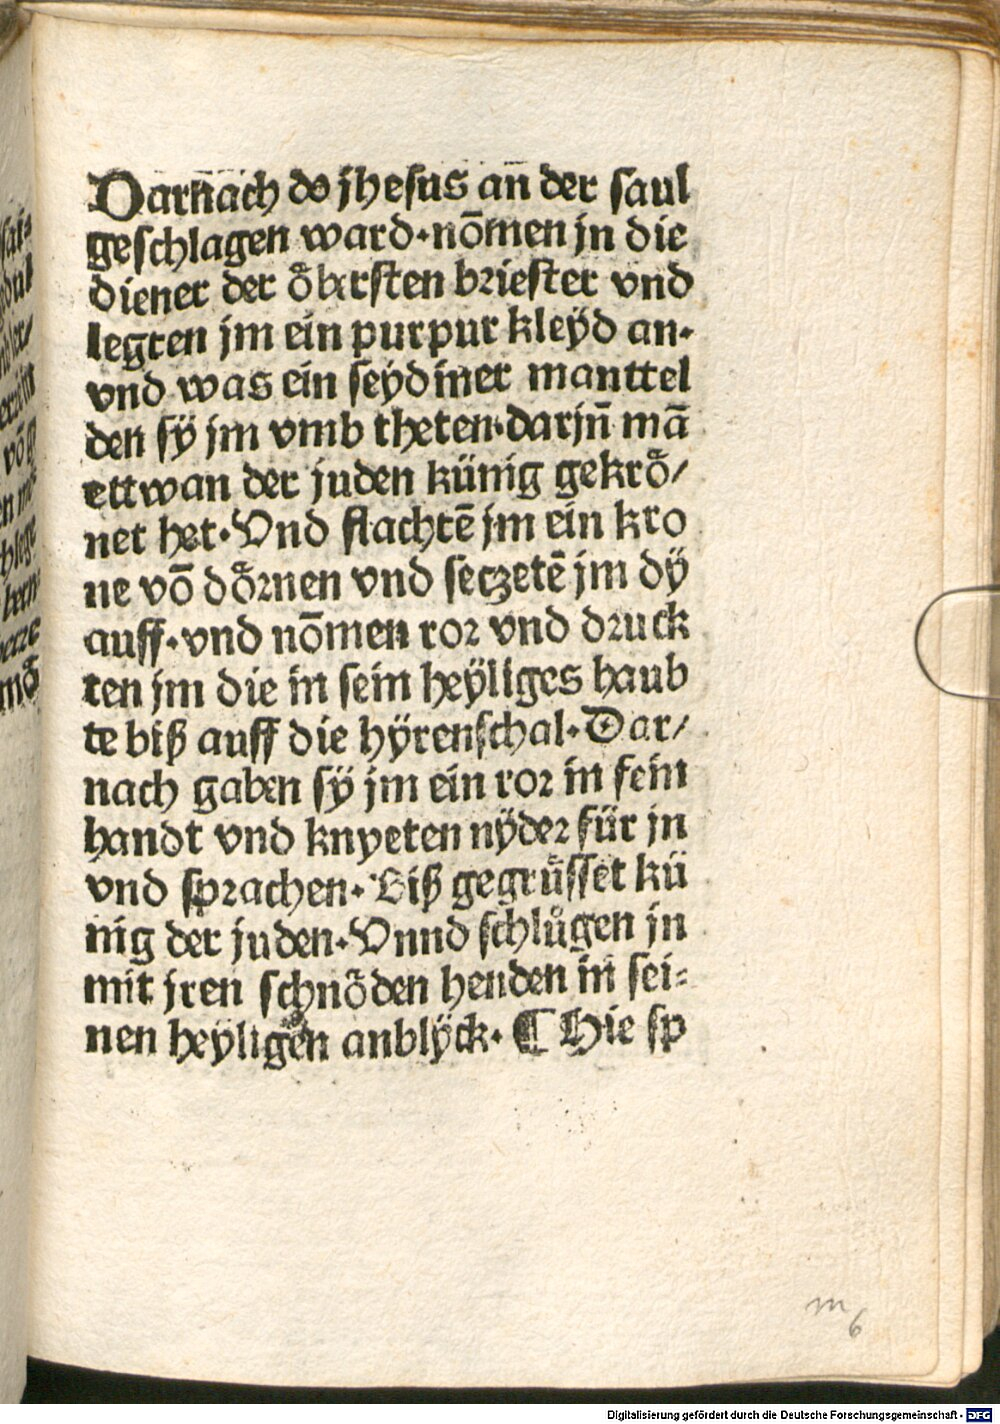 Darnach do jhesus an der saul
geschlagen ward·nōmen jn die
diener der oͤbersten briester vnd
legten jm ein purpur kleÿd an·
vnd was ein seydiner manttel
den sÿ jm vmb theten·darjn̄ mā
ettwan der juden künig gekroͤ/
net het·Vnd flachtē jm ein kro
ne vō doͤrnen vnd seczetē jm dÿ
auff·vnd nōmen ror vnd druck
ten jm die in sein heÿliges haub
te biß auff die hÿrenschal·Dar/
nach gaben sÿ jm ein ror in sein
handt vnd knyeten nÿder für jn
vnd sprachen·Biß gegruͤsset kü
nig der juden·Vnnd schluͦgen jn
mit jren schnoͤden henden in sei⸗
nen heÿligen anblÿck·¶ Hie sp
m
6
Digitalisierung gefördert durch die Deutsche Forschungsgemeinschaft - DFG